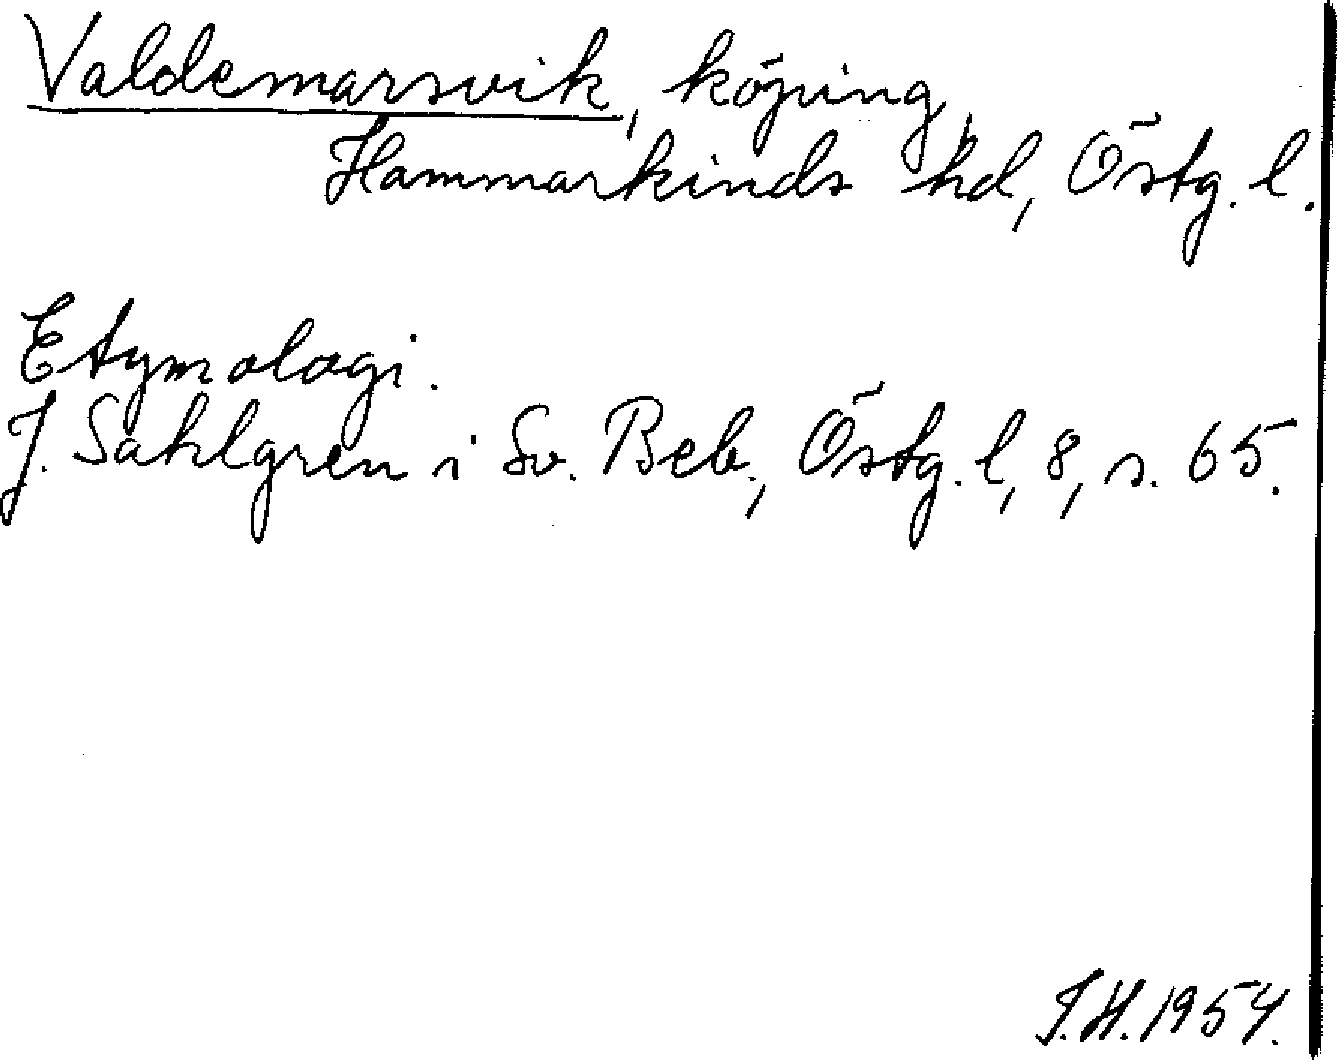 Valdemarsvik, köping,
Hammarkinds hd, Östg. l.
Etymologi.
J. Sahlgren i Sv. Beb., Östg. l, 8, s. 65.
I.H. 1954.